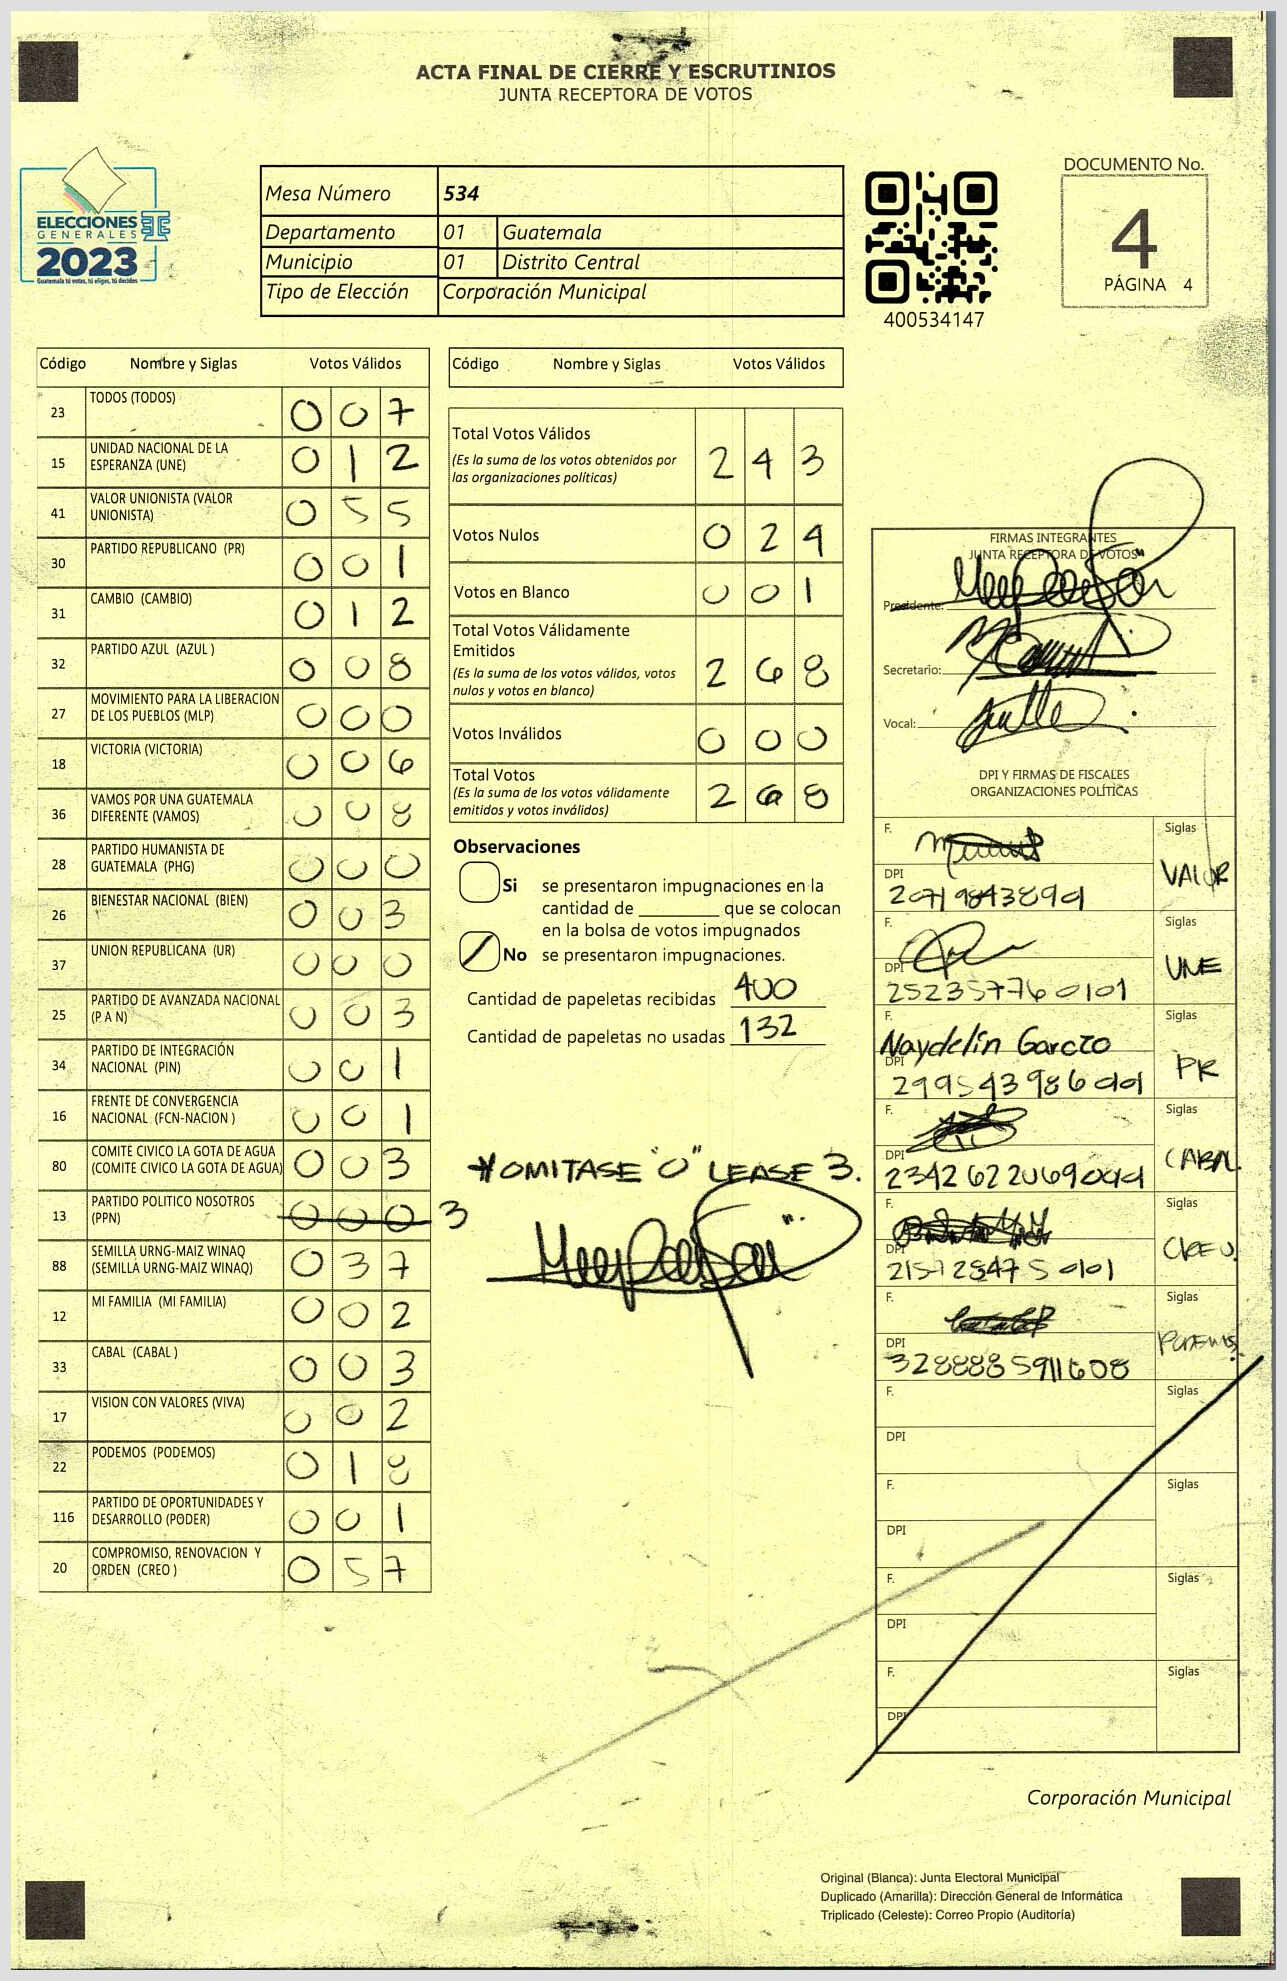 ACTA FINAL DE CIERRE Y ESCRUTINIOS
JUNTA RECEPTORA DE VOTOS
ELECCIONES
GENERALES
2023
Guatemala tú votas, tú eliges, tú decides
Mesa Número 534
Departamento 01 Guatemala
Municipio 01 Distrito Central
Tipo de Elección Corporación Municipal
400534147
DOCUMENTO No.
4
PÁGINA 4
Código Nombre y Siglas Votos Válidos
23 TODOS (TODOS) 0 0 7
15 UNIDAD NACIONAL DE LA ESPERANZA (UNE) 0 1 2
41 VALOR UNIONISTA (VALOR UNIONISTA) 0 5 5
30 PARTIDO REPUBLICANO (PR) 0 0 1
31 CAMBIO (CAMBIO) 0 1 2
32 PARTIDO AZUL (AZUL ) 0 0 8
27 MOVIMIENTO PARA LA LIBERACION DE LOS PUEBLOS (MLP) 0 0 0
18 VICTORIA (VICTORIA) 0 0 6
36 VAMOS POR UNA GUATEMALA DIFERENTE (VAMOS) 0 0 8
28 PARTIDO HUMANISTA DE GUATEMALA (PHG) 0 0 0
26 BIENESTAR NACIONAL (BIEN) 0 0 3
37 UNION REPUBLICANA (UR) 0 0 0
25 PARTIDO DE AVANZADA NACIONAL (P A N) 0 0 3
34 PARTIDO DE INTEGRACIÓN NACIONAL (PIN) 0 0 1
16 FRENTE DE CONVERGENCIA NACIONAL (FCN-NACION ) 0 0 1
80 COMITE CIVICO LA GOTA DE AGUA (COMITE CIVICO LA GOTA DE AGUA) 0 0 3
13 PARTIDO POLITICO NOSOTROS (PPN) 0 0 0 3
88 SEMILLA URNG-MAIZ WINAQ (SEMILLA URNG-MAIZ WINAQ) 0 3 7
12 MI FAMILIA (MI FAMILIA) 0 0 2
33 CABAL (CABAL ) 0 0 3
17 VISION CON VALORES (VIVA) 0 0 2
22 PODEMOS (PODEMOS) 0 1 8
116 PARTIDO DE OPORTUNIDADES Y DESARROLLO (PODER) 0 0 1
20 COMPROMISO, RENOVACION Y ORDEN (CREO ) 0 5 7
Código Nombre y Siglas Votos Válidos
Total Votos Válidos 2 4 3
(Es la suma de los votos obtenidos por
las organizaciones políticas)
Votos Nulos 0 2 4
Votos en Blanco 0 0 1
Total Votos Válidamente
Emitidos 2 6 8
(Es la suma de los votos válidos, votos
nulos y votos en blanco)
Votos Inválidos 0 0 0
Total Votos 2 6 8
(Es la suma de los votos válidamente
emitidos y votos inválidos)
Observaciones
Si se presentaron impugnaciones en la
cantidad de ________ que se colocan
en la bolsa de votos impugnados
No se presentaron impugnaciones.
Cantidad de papeletas recibidas 400
Cantidad de papeletas no usadas 132
*OMITASE "0" LEASE 3.
FIRMAS INTEGRANTES
JUNTA RECEPTORA DE VOTOS
Presidente:
Secretario:
Vocal:
DPI Y FIRMAS DE FISCALES
ORGANIZACIONES POLÍTICAS
F. Siglas
VALOR
DPI
F. Siglas
UNE
DPI
2523577600101
F. Siglas
Naydelin García
PR
DPI
F. Siglas
CABAL.
DPI
F. Siglas
CREO.
DPI
F. Siglas
PODEMOS.
DPI
3288885911608
F. Siglas
DPI
F. Siglas
DPI
F. Siglas
DPI
F. Siglas
DPI
Corporación Municipal
Original (Blanca): Junta Electoral Municipal
Duplicado (Amarilla): Dirección General de Informática
Triplicado (Celeste): Correo Propio (Auditoría)